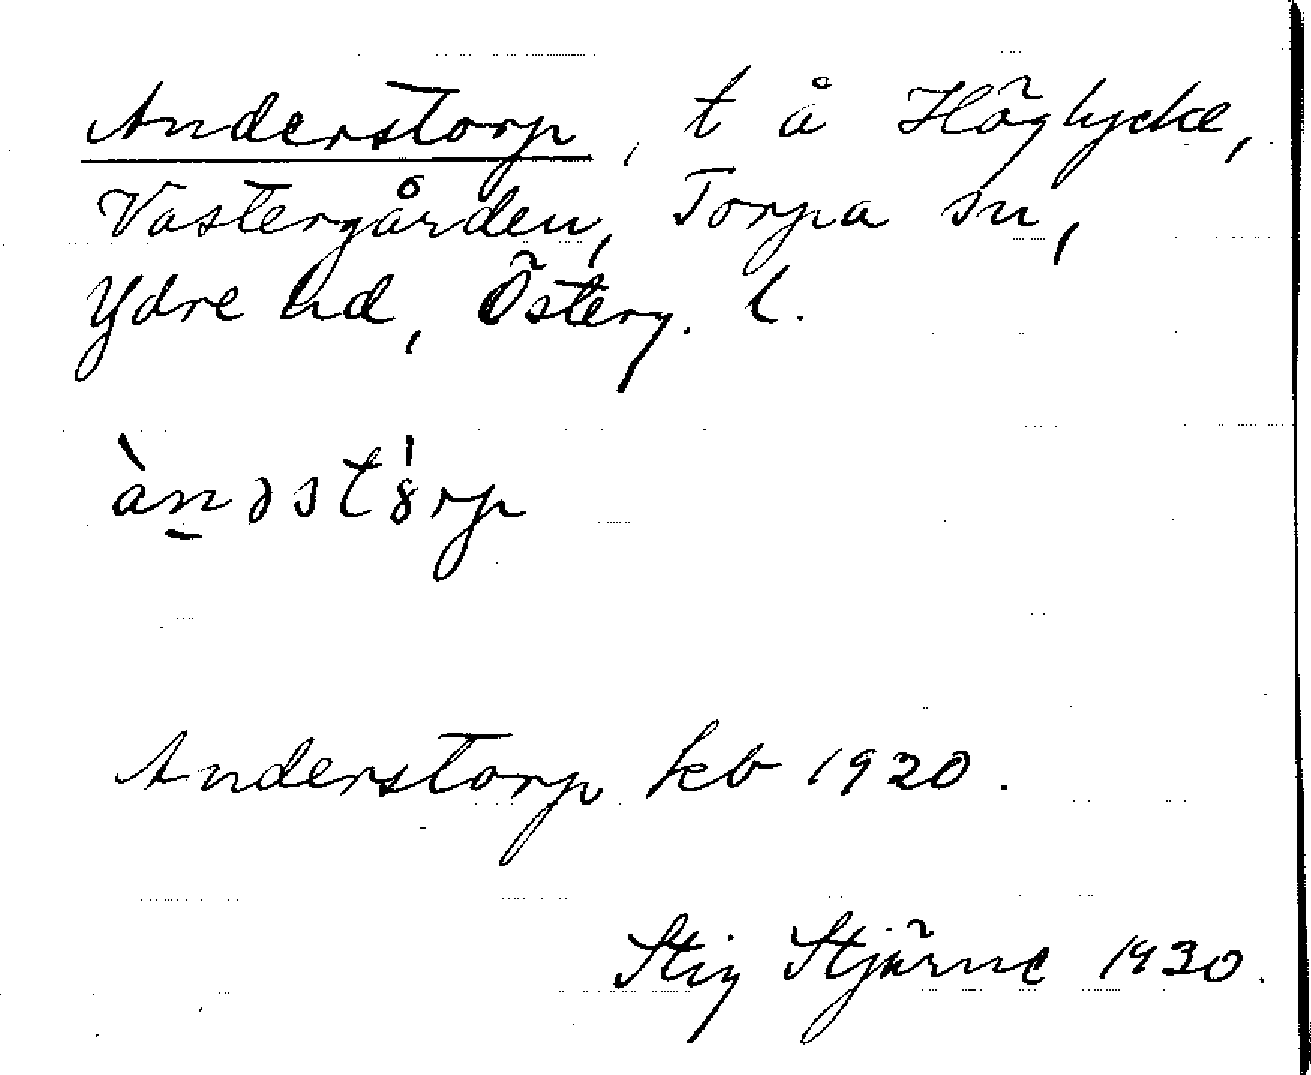 Anderstorp, t å Höglycke,
Västergården, Torpa sn,
Ydre hd, Österg. l.
àn̠əstȣ́rp
Anderstorp kb 1920.
Stig Stjärne 1930.